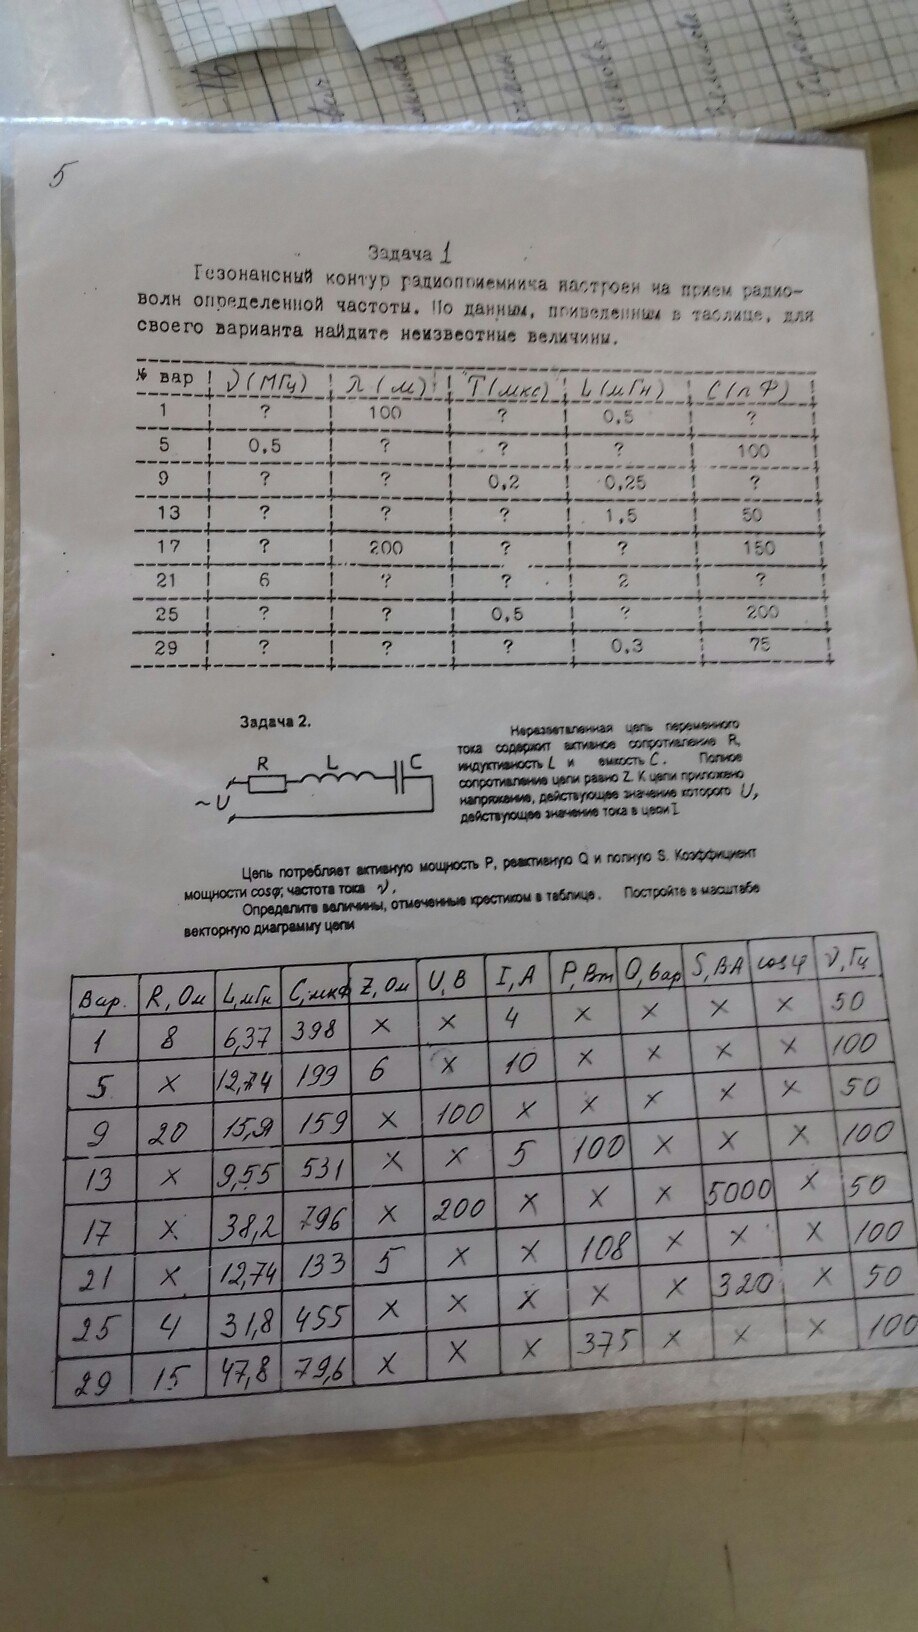 5
Задача 1
Резонансный контур радиоприемника настроен на прием радио-
волн определенной частоты. По данным, приведенным в таблице, для
своего варианта найдите неизвестные величины.
№ вар ν(МГц) λ(м) T(мкс) L(мГн) C(пФ)
1 ? 100 ? 0,5 ?
5 0,5 ? ? ? 100
9 ? ? 0,2 0,25 ?
13 ? ? ? 1,5 50
17 ? 200 ? ? 150
21 6 ? ? 2 ?
25 ? ? 0,5 ? 200
29 ? ? ? 0,3 75
Задача 2.
R L C
~U
Неразветвленная цепь переменного
тока содержит активное сопротивление R,
индуктивность L и емкость C. Полное
сопротивление цепи равно Z. К цепи приложено
напряжение, действующее значение которого U,
действующее значение тока в цепи I
Цепь потребляет активную мощность P, реактивную Q и полную S. Коэффициент
мощности cosφ; частота тока ν.
Определите величины, отмеченные крестиком в таблице. Постройте в масштабе
векторную диаграмму цепи
Вар. R, Ом L, мГн C, мкФ Z, Ом U, В I, А P, Вт Q, вар S, ВА cosφ ν, Гц
1 8 6,37 398 x x 4 x x x x 50
5 x 12,74 199 6 x 10 x x x x 100
9 20 15,9 159 x 100 x x x x x 50
13 x 9,55 531 x x 5 100 x x x 100
17 x 38,2 796 x 200 x x x 5000 x 50
21 x 12,74 133 5 x x 108 x x x 100
25 4 31,8 455 x x x x x 320 x 50
29 15 47,8 79,6 x x x 375 x x x 100